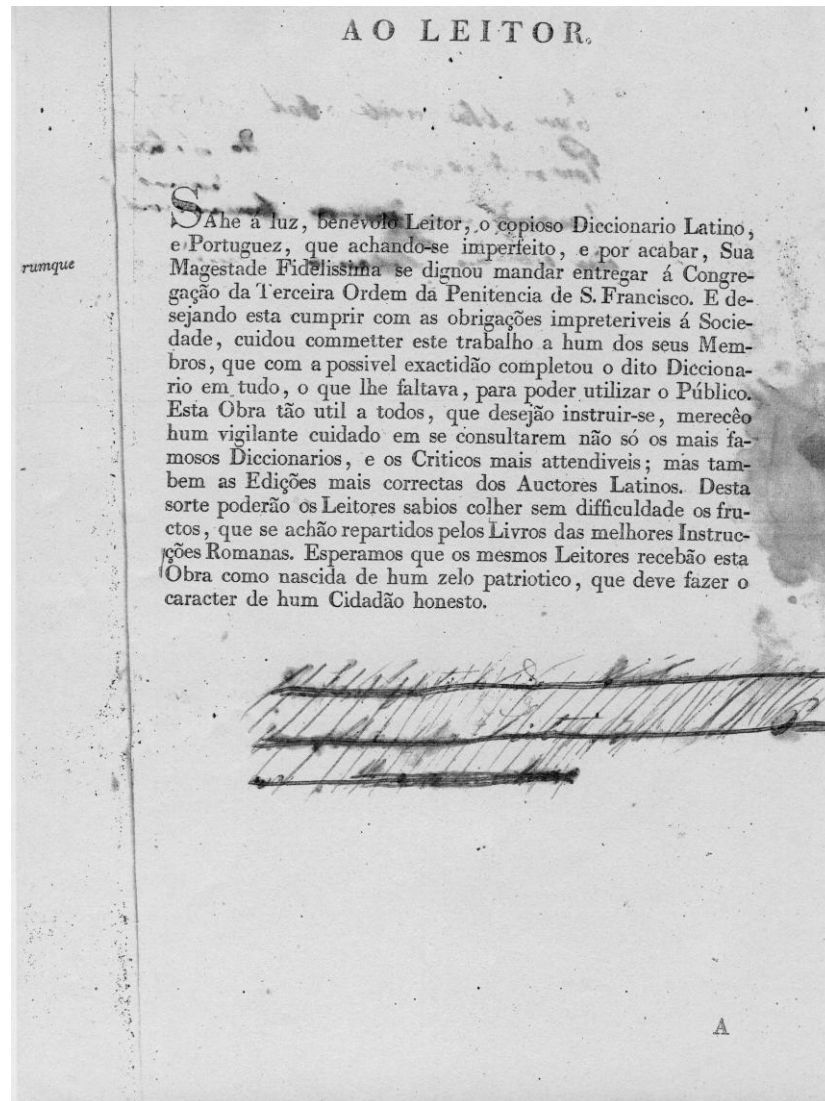 AO LEITOR.
SAhe á luz, benévolo Leitor, o copioso Diccionario Latino,
e Portuguez, que achando-se imperfeito, e por acabar, Sua
rumque
Magestade Fidelissima se dignou mandar entregar á Congre-
gação da Terceira Ordem da Penitencia de S. Francisco. E de-
sejando esta cumprir com as obrigações impreteriveis á Socie-
dade, cuidou commetter este trabalho a hum dos seus Mem-
bros, que com a possivel exactidão completou o dito Dicciona-
rio em tudo, o que lhe faltava, para poder utilizar o Público.
Esta Obra tão util a todos, que desejão instruir-se, merecêo
hum vigilante cuidado em se consultarem não só os mais fa-
mosos Diccionarios, e os Criticos mais attendiveis; mas tam-
bem as Edições mais correctas dos Auctores Latinos. Desta
sorte poderão os Leitores sabios colher sem difficuldade os fru-
ctos, que se achão repartidos pelos Livros das melhores Instruc-
ções Romanas. Esperamos que os mesmos Leitores recebão esta
Obra como nascida de hum zelo patriotico, que deve fazer o
caracter de hum Cidadão honesto.
A